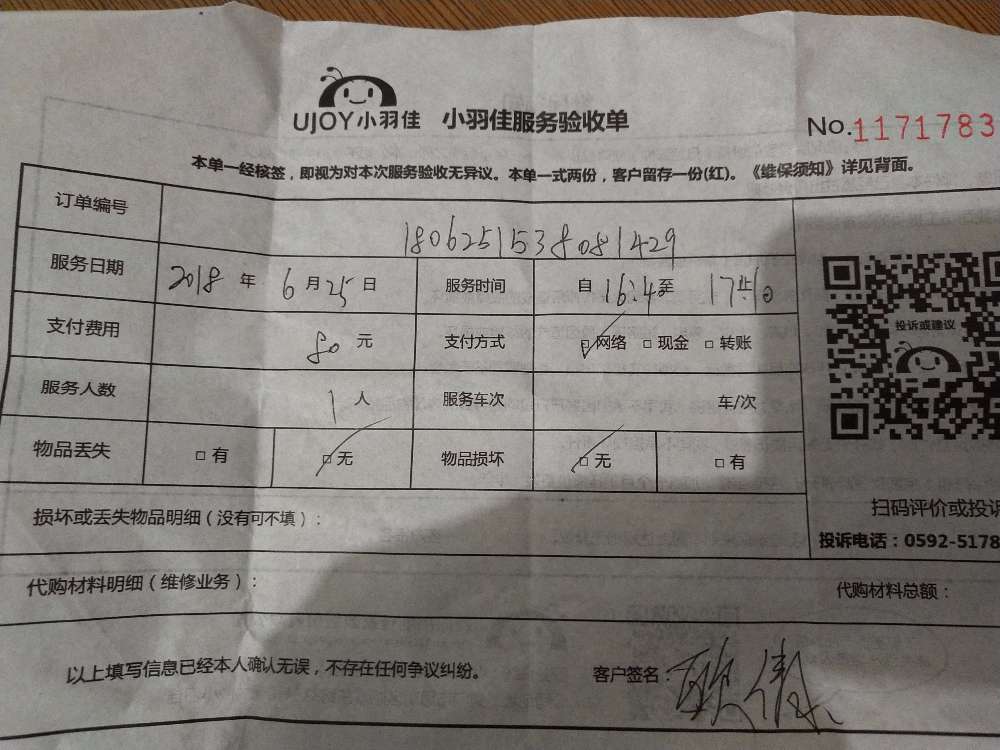 UJOY小羽佳 小羽佳服务验收单
No.1171783
本单一经核签，即视为对本次服务验收无异议。本单一式两份，客户留存一份(红)。《维保须知》详见背面。
订单编号 1806251538081429
服务日期 2018 年 6 月 25 日 服务时间 自 16:4 至
支付费用 80 元 支付方式 □网络 □现金 □转账
服务人数 1 人 服务车次 车/次
物品丢失 □有 □无 物品损坏 □无 □有
投诉或建议
扫码评价或投诉
投诉电话：0592-5178
损坏或丢失物品明细（没有可不填）：
代购材料明细（维修业务）： 代购材料总额：
以上填写信息已经本人确认无误，不存在任何争议纠纷。 客户签名：